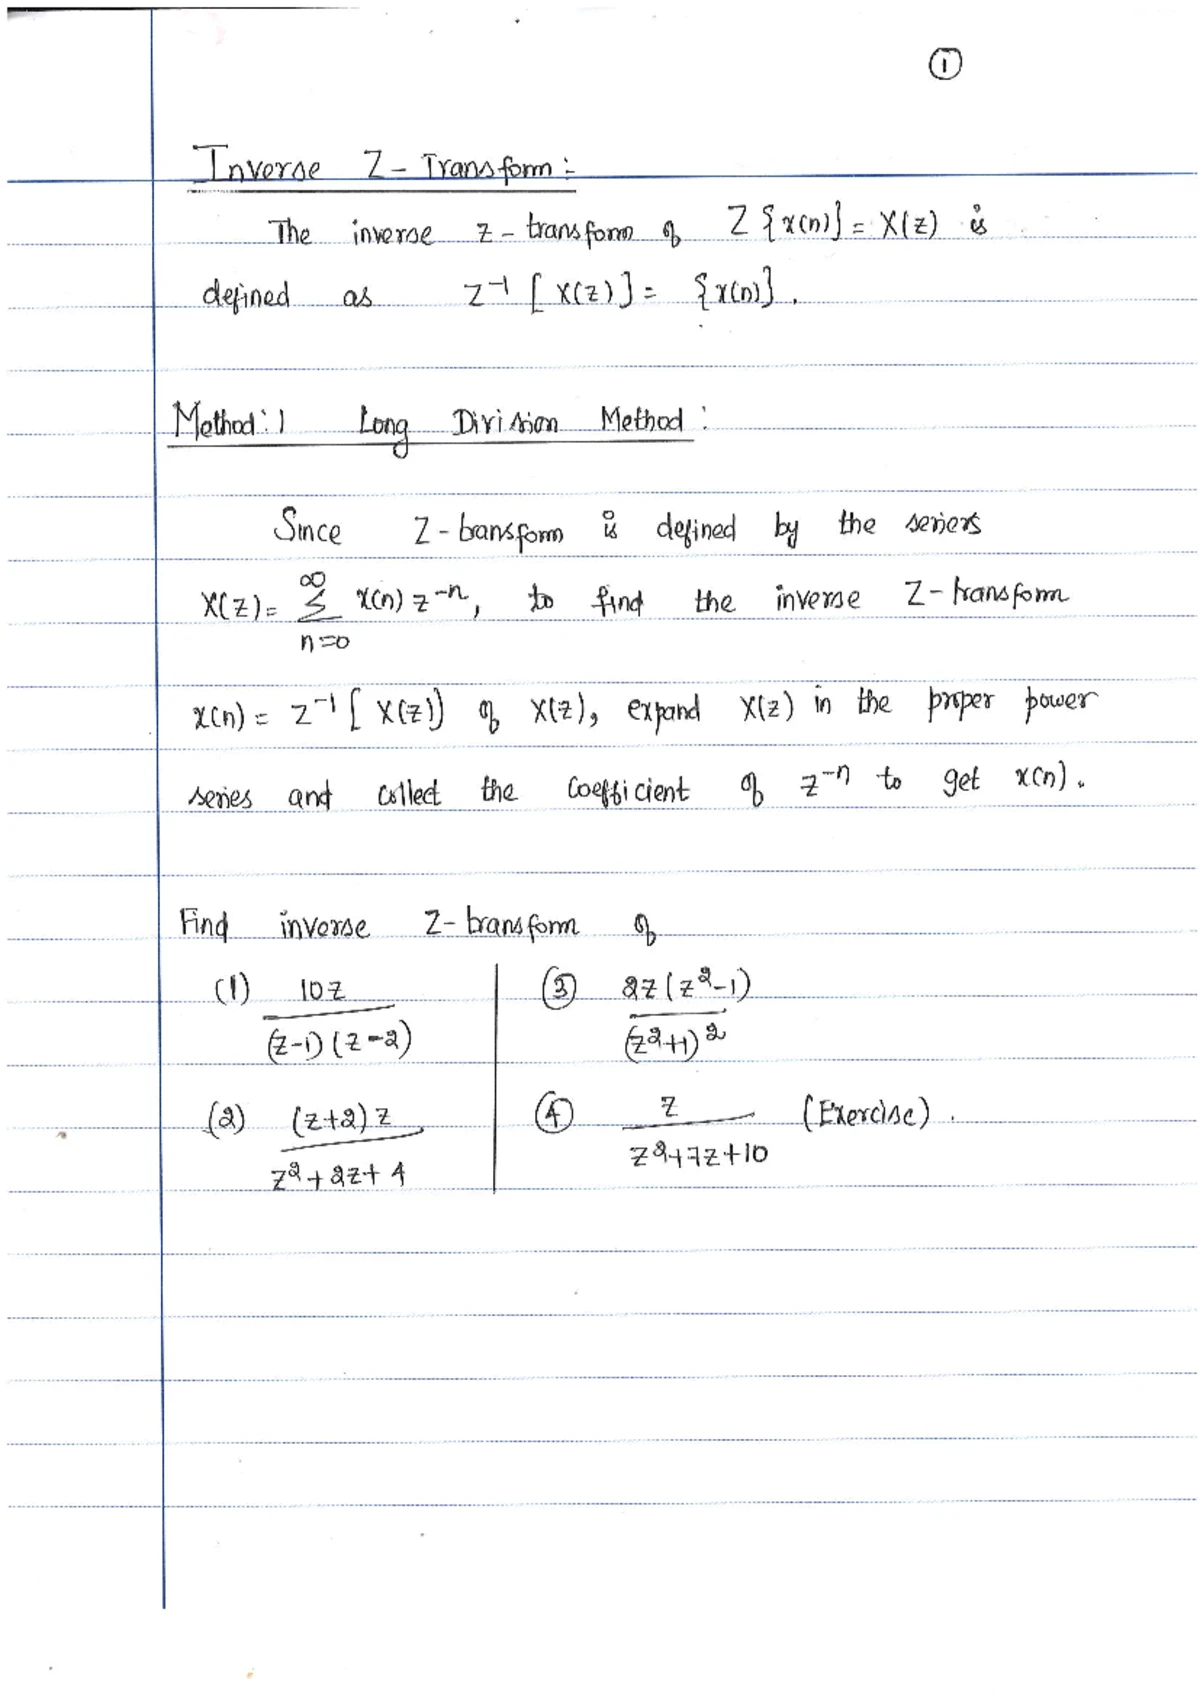 ①
Inverse Z - Transform :
The inverse z - transform of Z {x(n)} = X(z) is
defined as z⁻¹ [ X(z) ] = {x(n)}.
Method : 1 Long Division Method :
Since Z - transform is defined by the seriers
X(z) = ∞ Σ n=0 x(n) z⁻ⁿ, to find the inverse Z - transform
x(n) = z⁻¹ [ X(z)] of X(z), expand X(z) in the proper power
series and collect the coefficient of z⁻ⁿ to get x(n).
Find inverse Z - transform of
(1) 10z / (z-1) (z-2)
(2) (z+2) z / z² + 2z + 4
③ 2z (z²-1) / (z²+1)²
④ z / z²+7z+10 (Exercise).